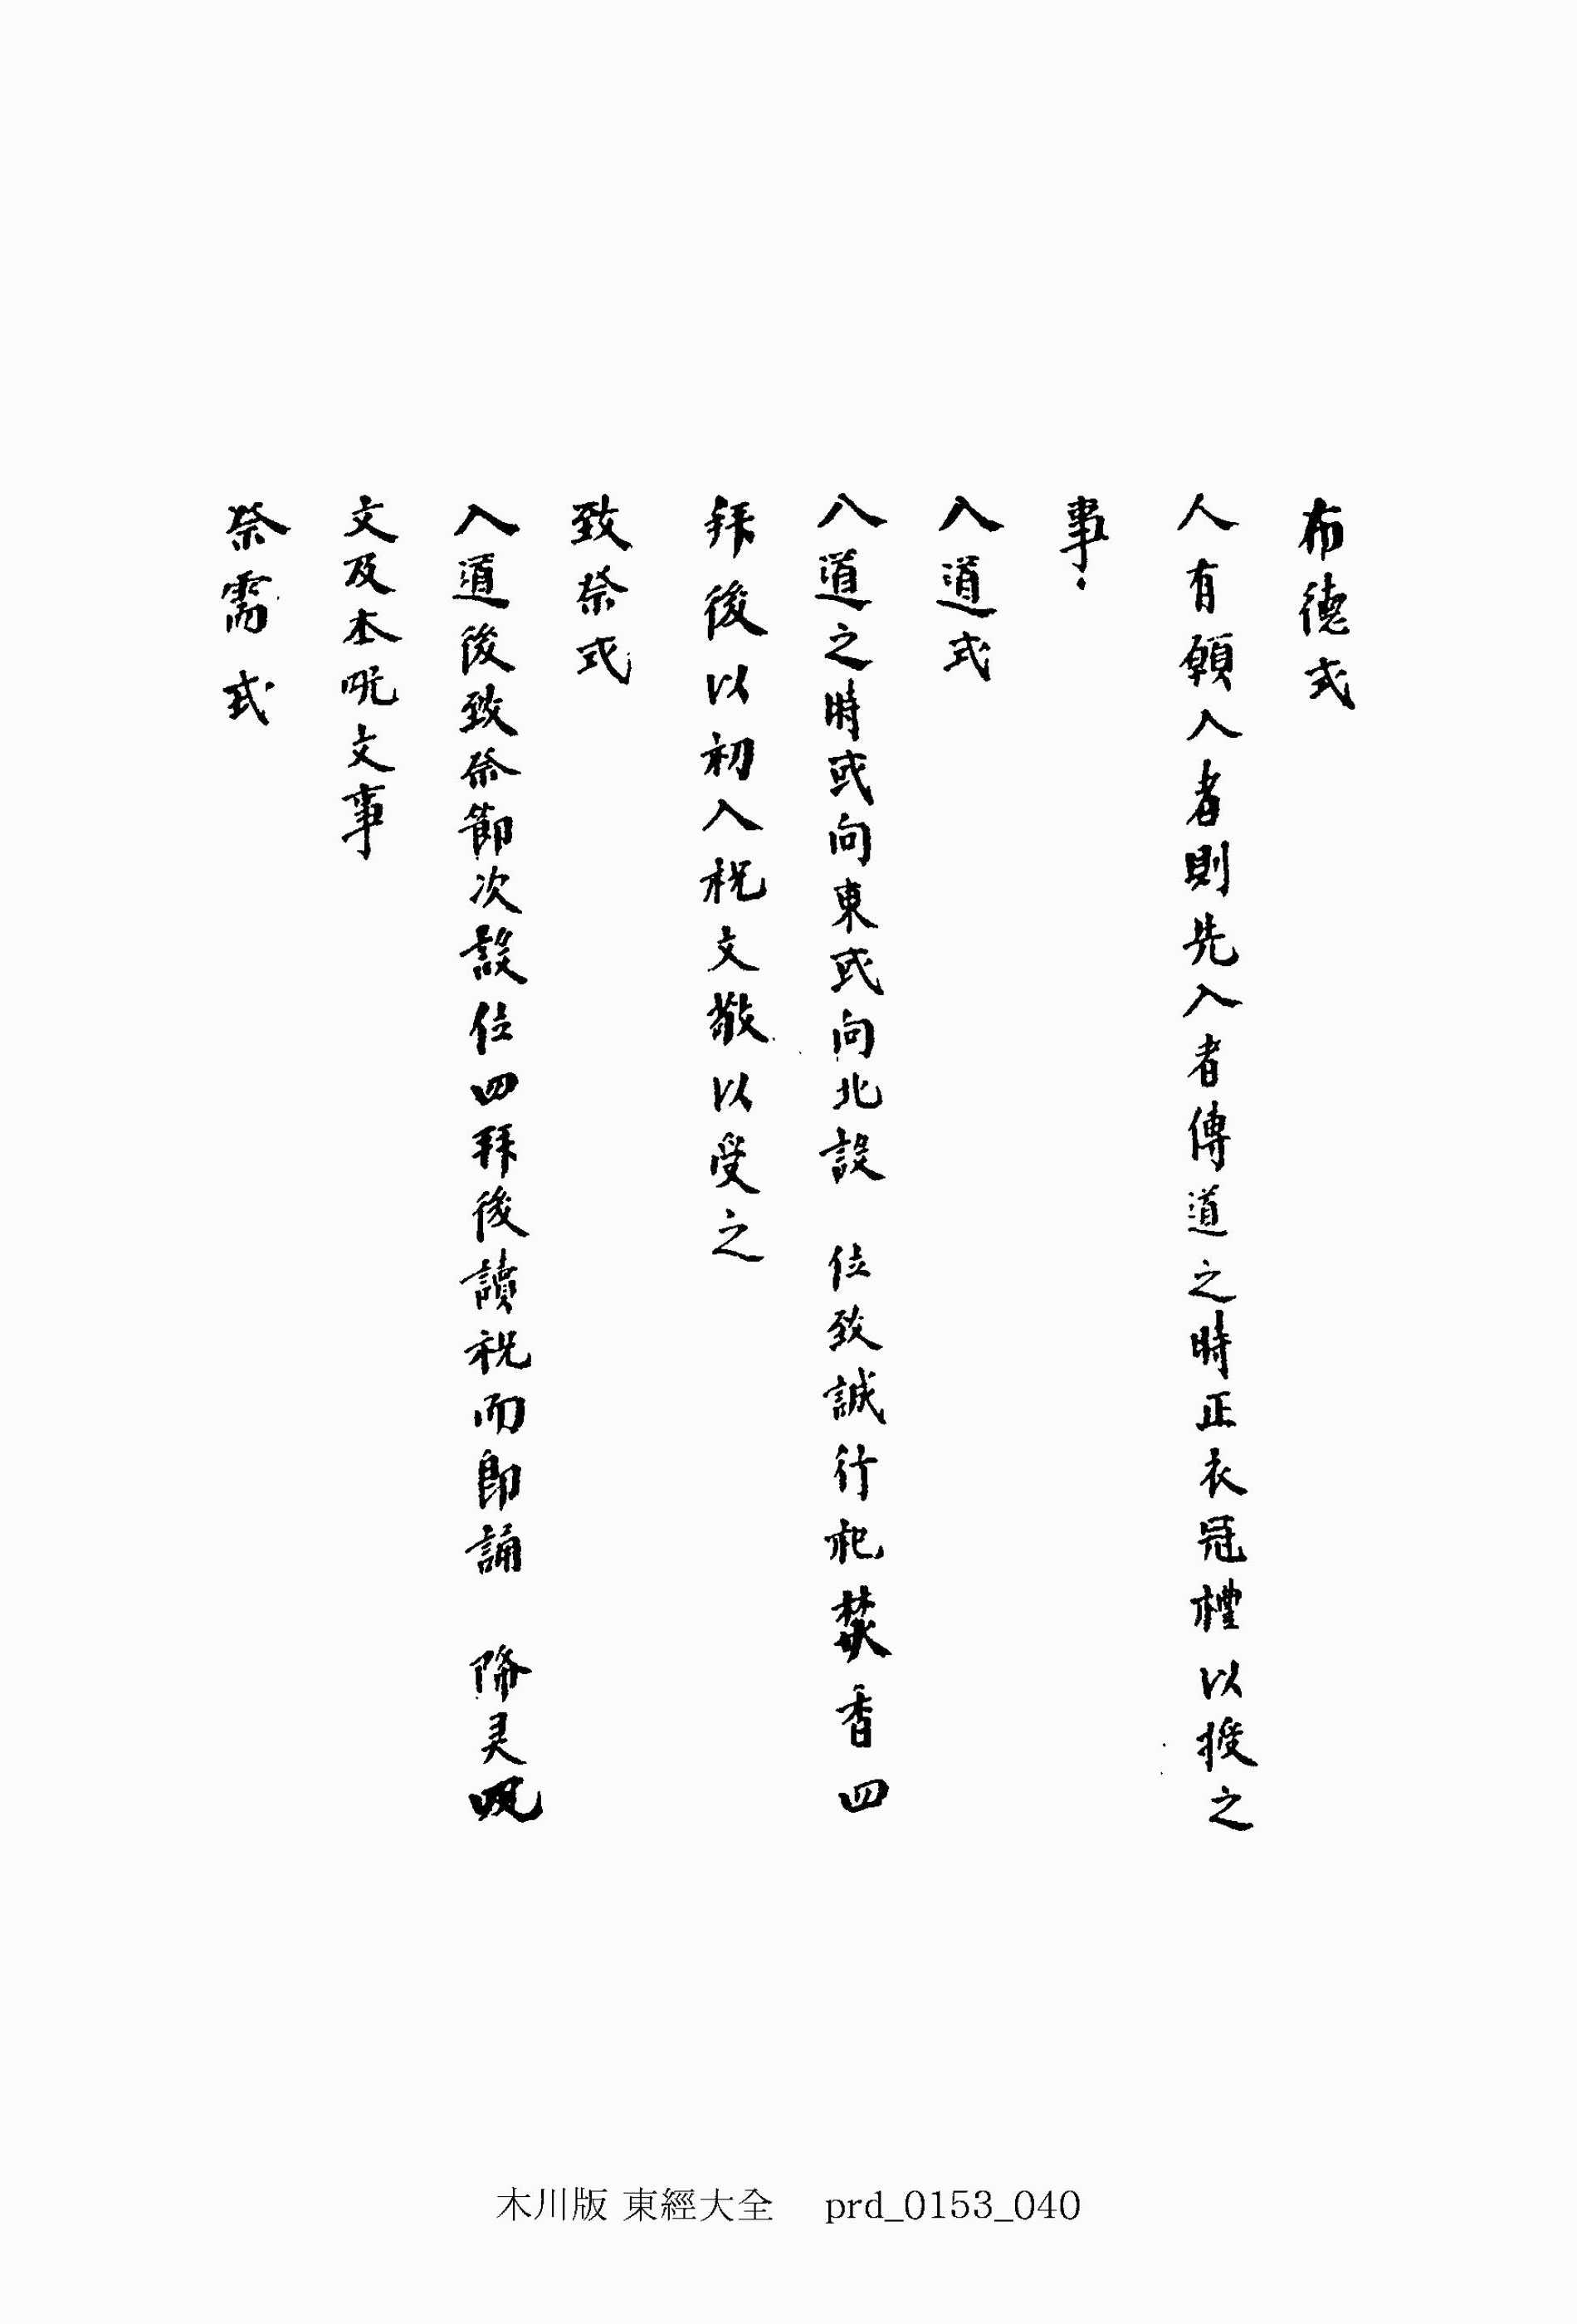 布德式
人有願入者則先入者傳道之時正衣冠禮以授之
事
入道式
入道之時或向東或向北設　位致誠行祀焚香四
拜後以初入祝文敬以受之
致祭式
入道後致祭節次設位四拜後讀祝而即誦　降灵呪
文及本呪文事
祭需式
木川版 東經大全 prd_0153_040